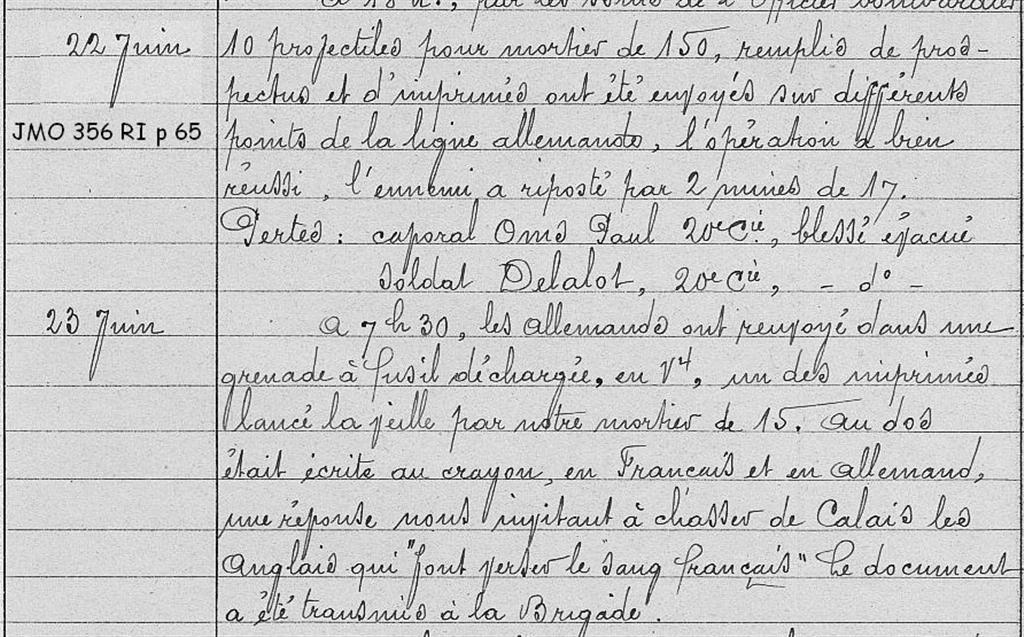 A 18 h., par les soins de l'Officier bombardier
22 Juin
10 projectiles pour mortier de 150, remplis de pros-
pectus et d'imprimés ont été envoyés sur différents
JMO 356 RI p 65
points de la ligne allemande, l'opération a bien
réussi, l'ennemi a riposté par 2 mines de 17.
Pertes : caporal Oms Paul 20e Cie, blessé évacué
soldat Delalot, 20e Cie, - d° -
23 Juin
A 7 h 30, les allemands ont renvoyé dans une
grenade à fusil déchargée, en V4, un des imprimés
lancé la veille par notre mortier de 15. Au dos
était écrite au crayon, en Francais et en allemand,
une réponse nous invitant à chasser de Calais les
Anglais qui "font verser le sang français" Le document
a été transmis à la Brigade.